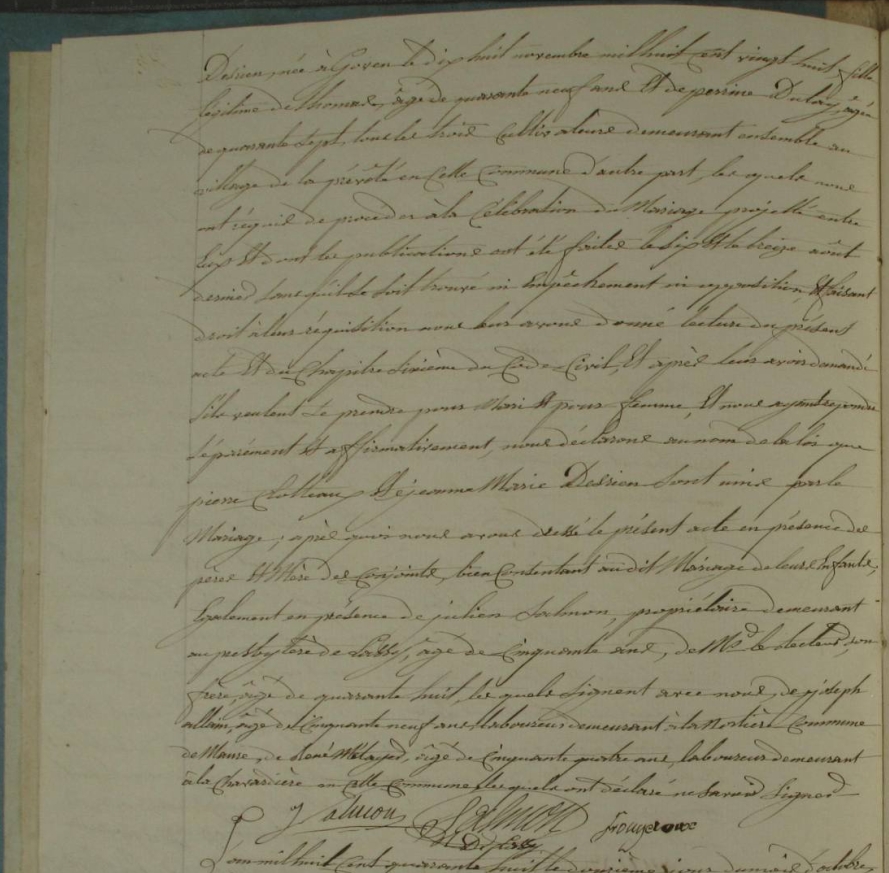 Derrien, née à Goven le dix huit novembre mil huit cent vingt huit, fille
légitime de thomas, âgé de quarante neuf ans Et de perrine Dulay, âgée
de quarante sept, tous les trois Cultivateurs demeurant ensemble au
village de la prévôté en Cette Commune d'autre part, les quels nous
ont réquis de proceder à la Célébration du Mariage projetté entre
Eux Et dont les publications ont été faites le six Et le treize août
dernier sans qu'il se soit trouvé ni Empêchement ni opposition, Et faisant
droit à leur réquisition nous leur avons donné lecture du présent
acte Et du Chapitre sixième du Code Civil, Et après leur avoir demandé
s'ils veulent se prendre pour Mari Et pour femme, Et nous ayant repondu
séparément Et affirmativement, nous déclarons au nom de la loi que
pierre Et jeanne Marie Derrien sont unis par le
Mariage; après quoi nous avons dressé le présent acte en présence des
pères Et Mère des Conjoints, bien Consentant au dit Mariage de leurs Enfants,
Egalement en présence de julien Salmon, propriétaire demeurant
au presbytère de Lassy, âgé de Cinquante ans, de Mr le recteur, son
frère, âgé de quarante huit, les quels signent avec nous, de joseph
allain, âgé de Cinquante neuf ans, laboureur demeurant à la Commune
de Maure, de René Métayer, âgé de Cinquante quatre ans, laboureur demeurant
à la en Cette Commune les quels ont déclaré ne savoir signer
J Salmon Salmon
Dr Lassy
L'an mil huit cent quarante huit le douzième jour du mois d'octobre,